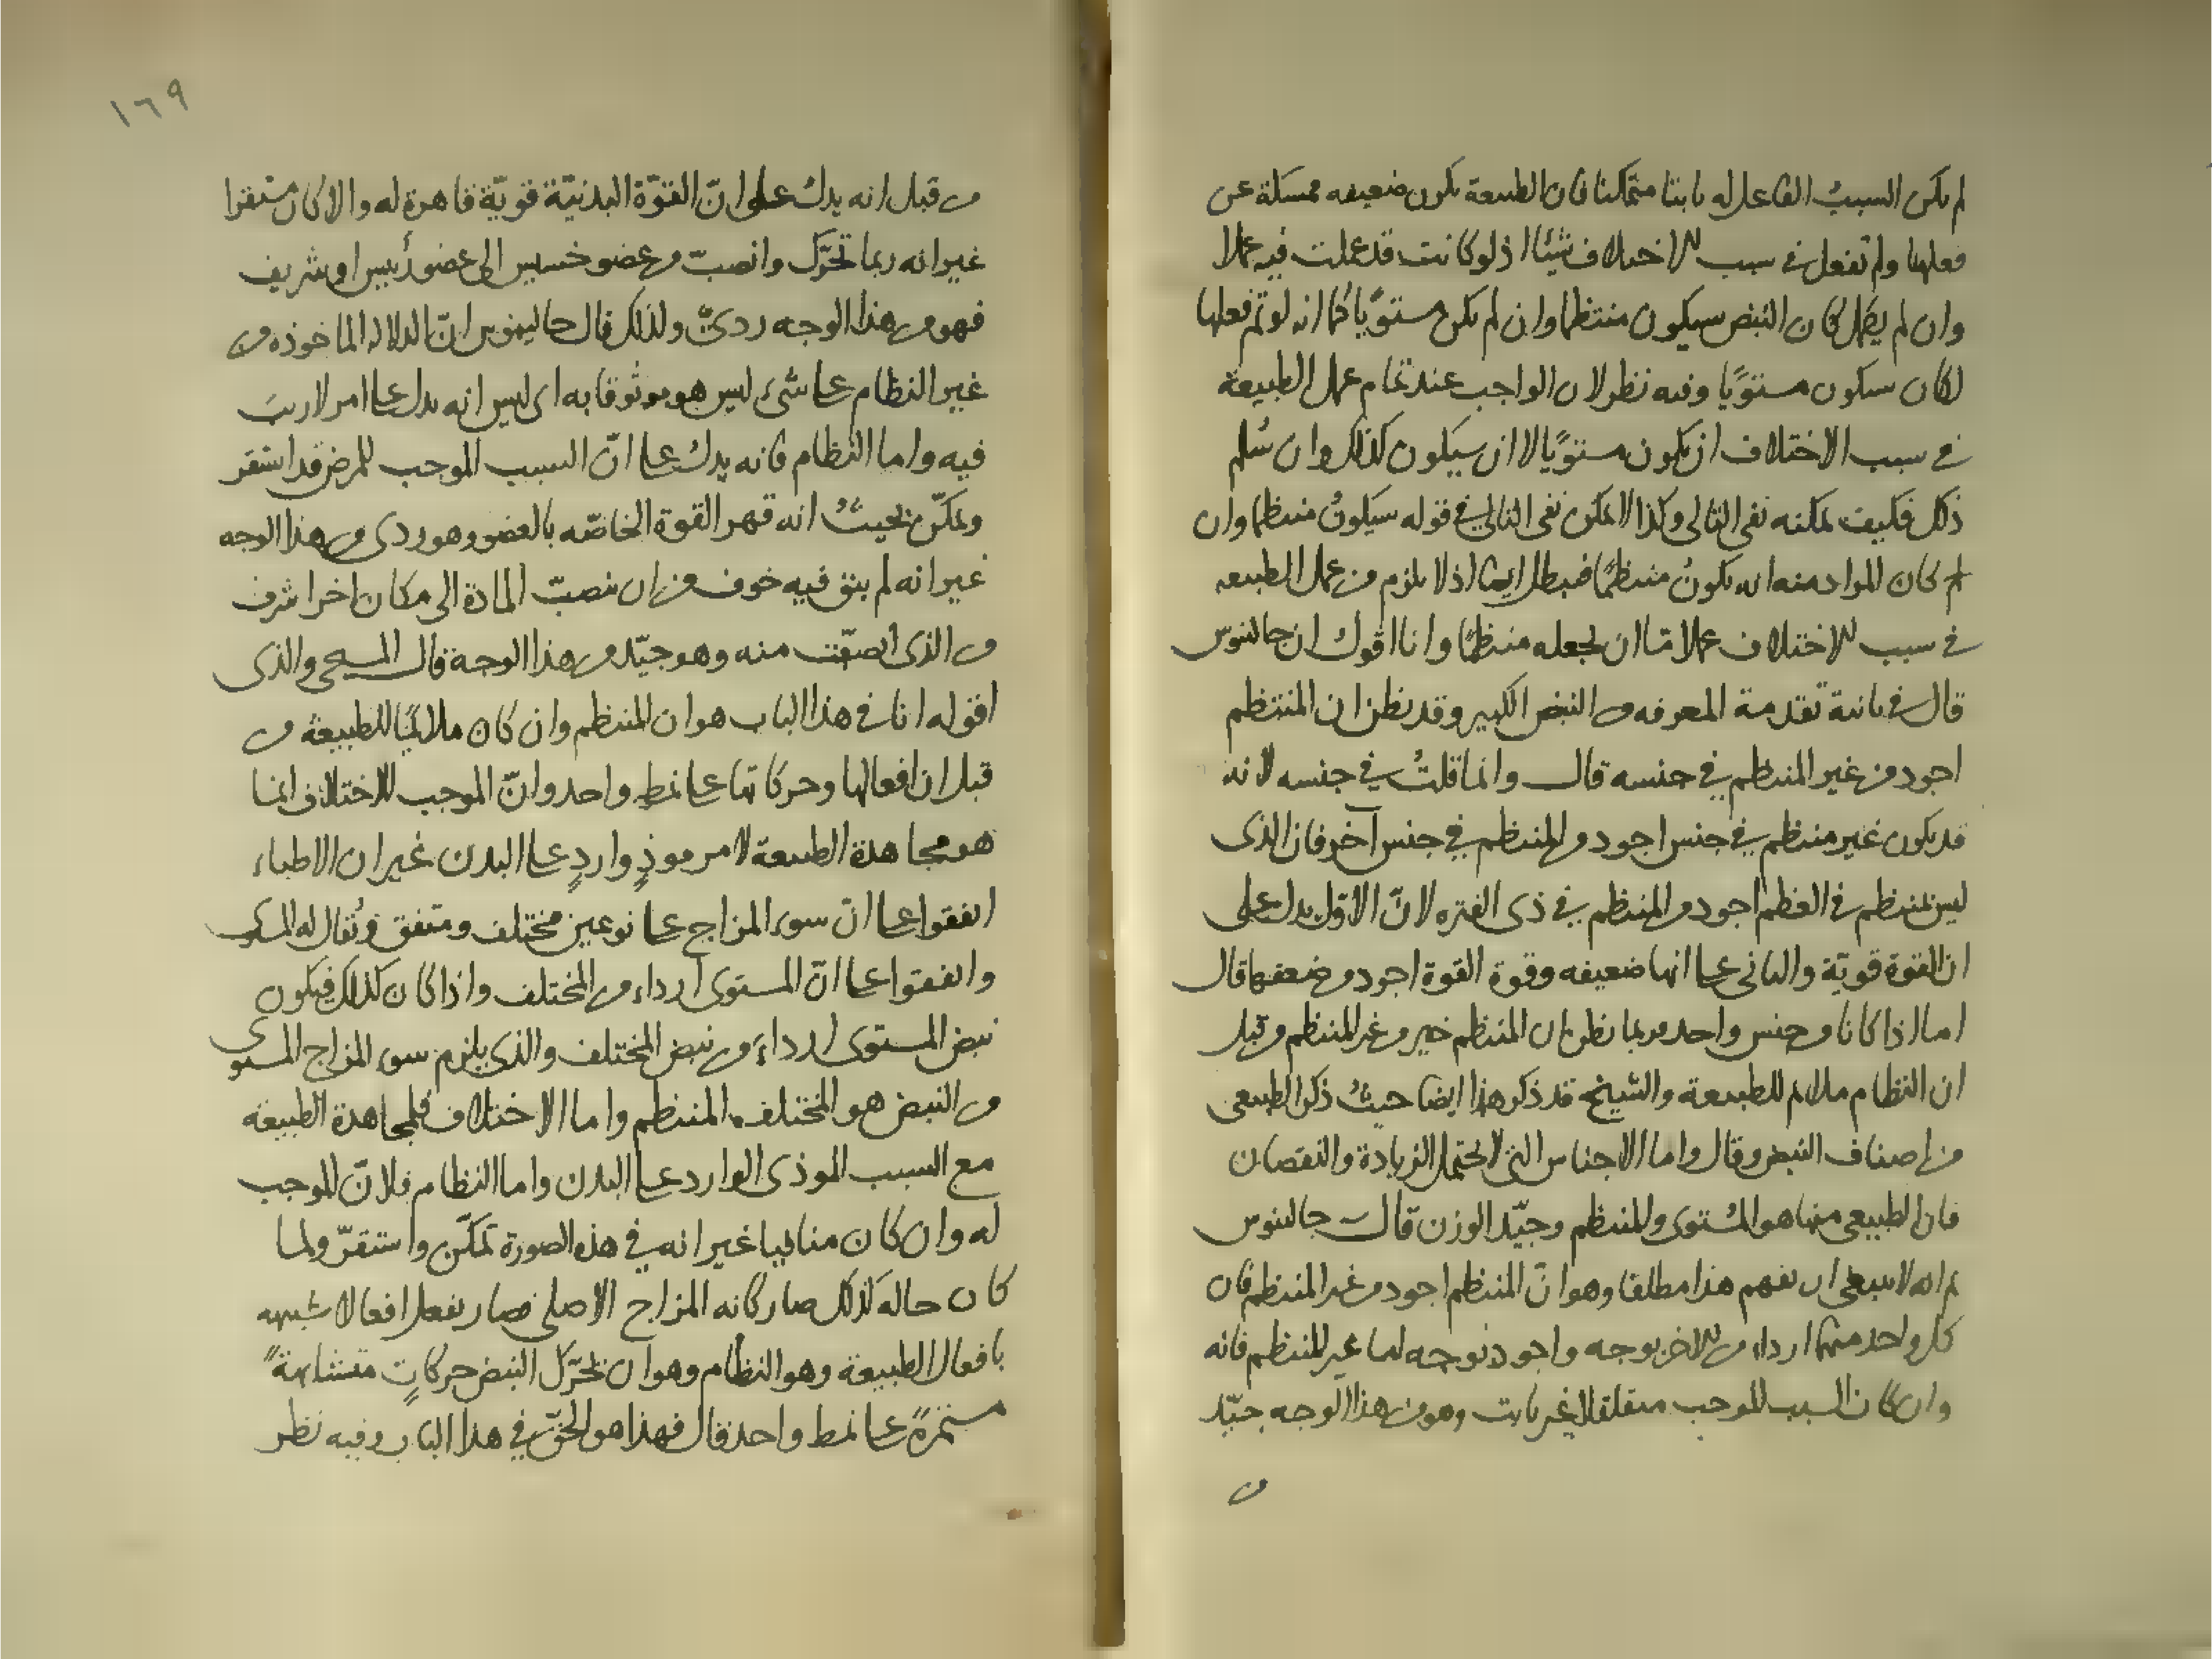 لم يكن السبب الفاعل له ثابتا متمكنا فان الطبيعة تكون ضعيفه ممسكة عن
فعلها ولم تفعل في سبب الاختلاف شيئا اذ لو كانت قد عملت فيه عملا
وان لم يكمل كان النبض سيكون منتظما وان لم يكن مستويا كما انه لو تم فعلها
لكان سيكون مستويا وفيه نظر لان الواجب عند تمام عمل الطبيعة
في سبب الاختلاف ان يكون مستويا لا ان سيكون كذلك وان سُلم
ذلك فكيف يمكنه نفي التالي وكذا لا يمكن نفي التالي في قوله سيكون منتظما وان
كان المراد منه انه يكون منتظما فبطل ايضا اذ لا يلزم من عمل الطبيعه
في سبب الاختلاف عملا ما ان تجعله منتظما وانا اقول ان جالينوس
قال في ثانية تقدمة المعرفه من النبض الكبير وقد نظن ان المنتظم
اجود من غير المنتظم في جنسه قال وانما قلت في جنسه لانه
قد يكون غير منتظم في جنس اجود من المنتظم في جنس آخر فان الذى
ليس بمنتظم في العظم اجود من المنتظم في ذى الفتره لانّ الاوّل يدل على
ان القوة قويّة والثاني على انها ضعيفه وقوة القوة اجود من ضعفها قال
اما اذا كانا من جنس واحد فربما نظن ان المنتظم خير من غير المنتظم من قبل
ان النظام ملائم للطبيعة والشيخ قد ذكر هذا ايضا حيث ذكر الطبيعي
من اصناف النبض وقال واما الاجناس التي لا تحتمل الزيادة والنقصان
فان الطبيعي منها هو المستوى والمنتظم وجيّد الوزن قال جالينوس
ثم انه لا ينبغي ان نفهم هذا مطلقا وهو انّ المنتظم اجود من غير المنتظم فان
كل واحد منهما ارداء من الاخر بوجه واجود بوجه اما غير المنتظم فانه
وان كان السبب الموجب متقلقلا غير ثابت وهو من هذا الوجه جيّد
من
١٦٩
من قبل انه يدل على انّ القوّة البدنيّة قويّة قاهرة له والا كان مستقرا
غير انه ربما تحرّك وانصبّ من عضو خسيس الى عضو رئيس او شريف
فهو من هذا الوجه ردىّ ولذلك قال جالينوس انّ الدلالة الماخوذه من
غير النظام على شيء ليس هو موثوقا به اى ليس انه يدل على امر لا ريب
فيه واما النظام فانه يدل على انّ السبب الموجب للمرض قد استقر
وتمكّن بحيث انه قهر القوة الخاصّه بالعضو وهو ردى من هذا الوجه
غير انه لم يبق فيه خوف من ان تنصبّ المادة الى مكان اخر اشرف
من الذى انصبّت منه وهو جيّد من هذا الوجه قال المسيحي والذى
اقوله انا في هذا الباب هو ان المنتظم وان كان ملائما للطبيعة من
قبل ان افعالها وحركاتها على نمط واحد وانّ الموجب للاختلاف انما
هو مجاهدة الطبيعة لامر موذٍ واردٍ على البدن غير ان الاطباء
اتفقوا على انّ سوء المزاج على نوعين مختلف ومتفق ويُقال له المستوى
واتفقوا على انّ المستوى ارداء من المختلف واذا كان كذلك فيكون
نبض المستوى ارداء من نبض المختلف والذى يلزم سوء المزاج المستوى
من النبض هو المختلف المنتظم واما الاختلاف فلمجاهدة الطبيعة
مع السبب الموذى الوارد على البدن واما النظام فلانّ الموجب
له وان كان منافيا غير انه في هذه الصورة تمكّن واستقرّ ولما
كان حاله كذلك صار كانه المزاج الاصلي فصار يفعل افعالا شبيهه
بافعال الطبيعة وهو النظام وهو ان تحرّك النبض حركاتٍ متشابهةً
مستمرّةً على نمط واحد قال فهذا هو الحقّ في هذا الباب وفيه نظر